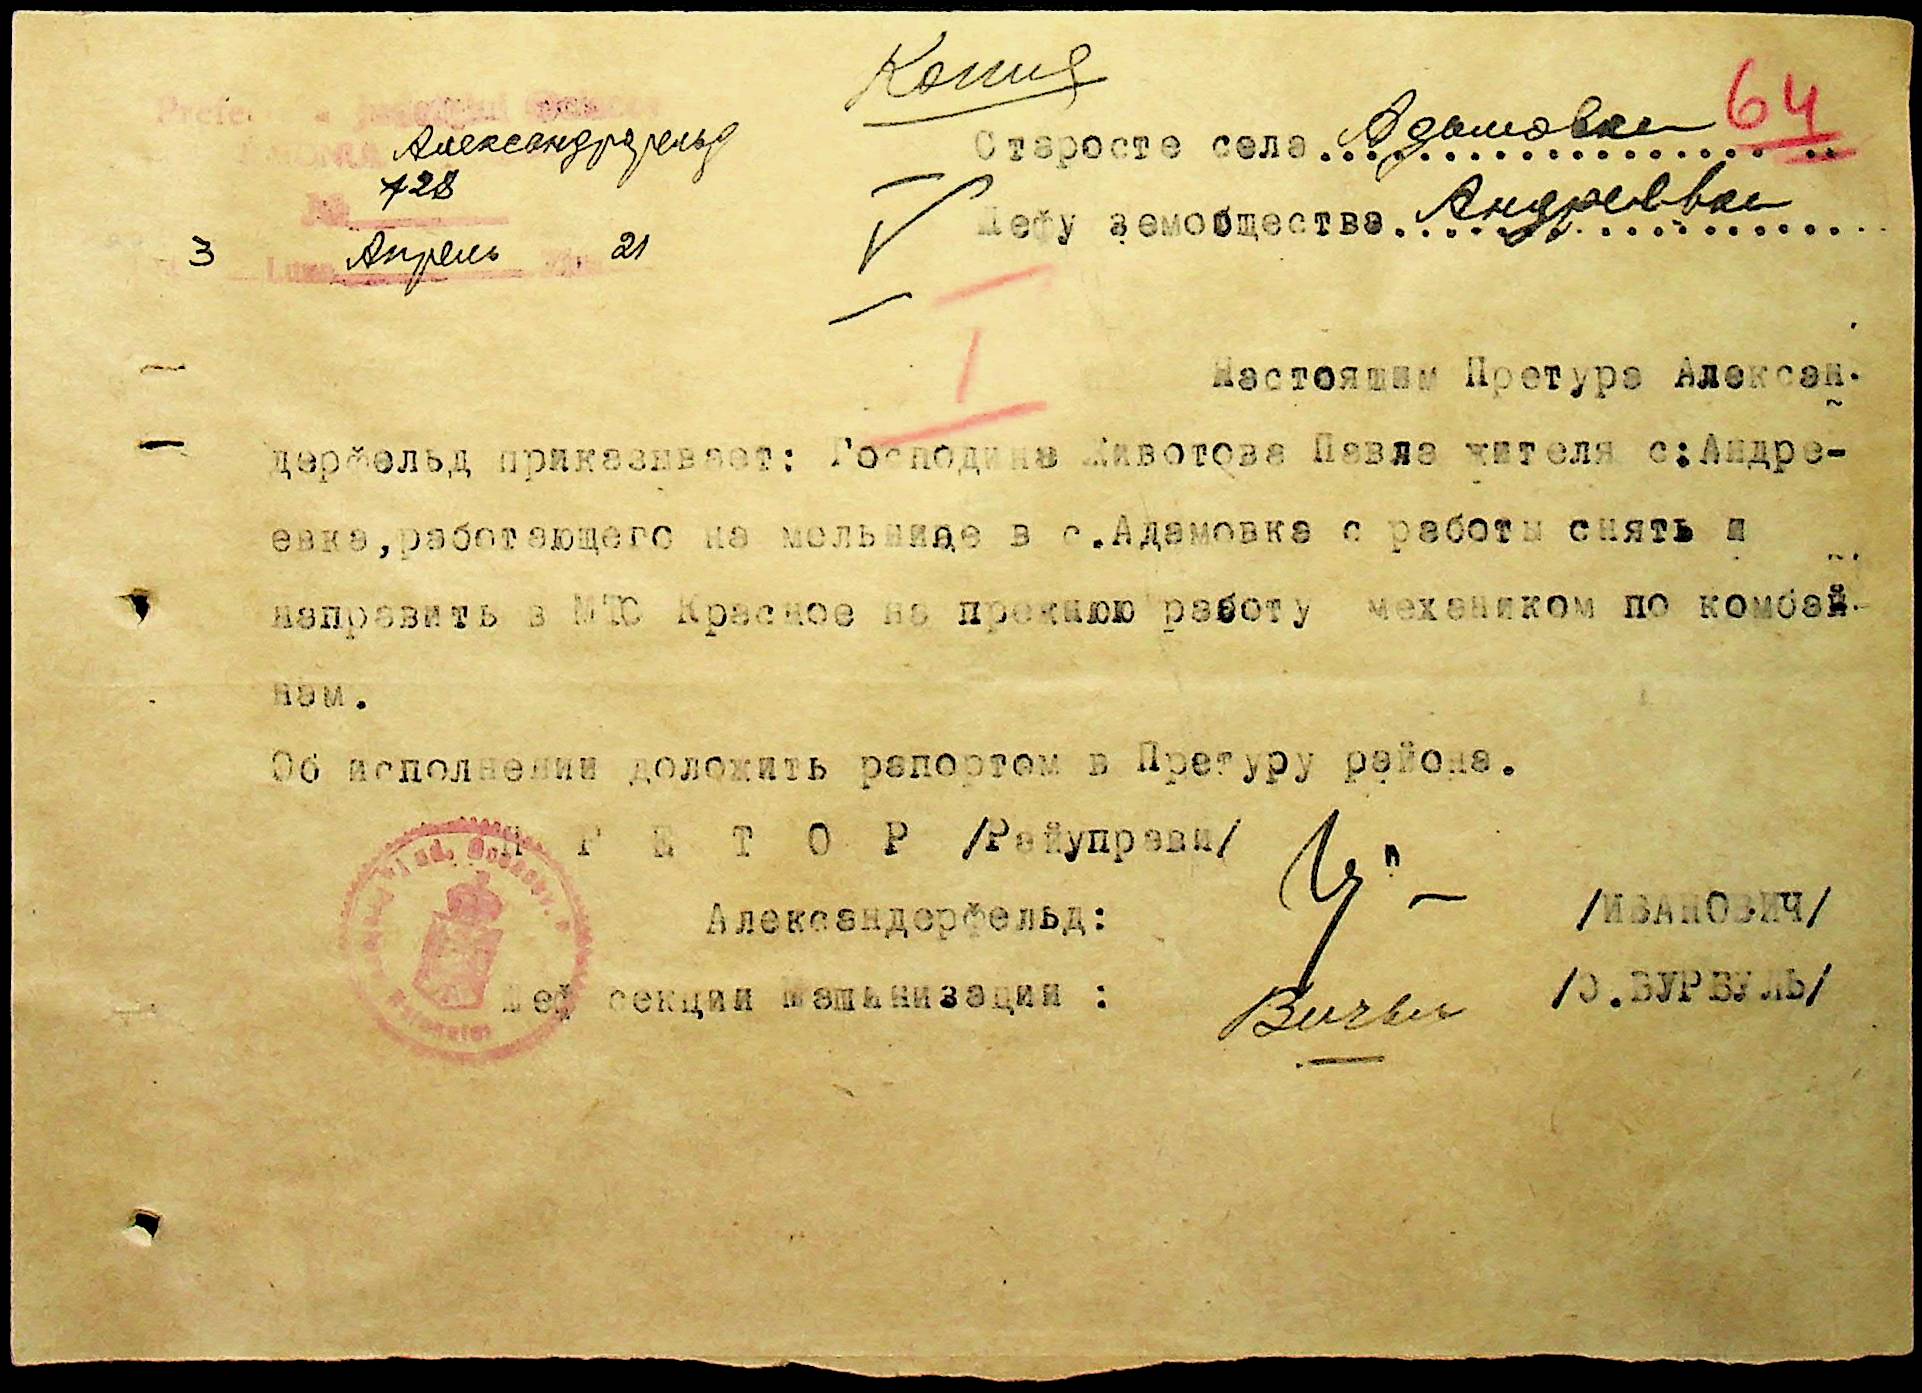 Копия
64
Prefec
Александрфельд
Старосте села Адамовки
№ 728
Шефу земобщества Андреевки
3 Luna Апрель 21
Настоящим Претура Алексан-
дерфельд приказывает: Господина Животова Павла жителя с:Андре-
евка,работающего на мельнице в с.Адамовка с работы снять и
направить в МТС Красное на прежнюю работу механиком по комбай-
нам.
Об исполнении доложить рапортом в Претуру района.
П Р Е Т О Р /Райуправы/
Александерфельд: /ИВАНОВИЧ/
Шеф секции Машинизации : /О.БУРБУЛЬ/